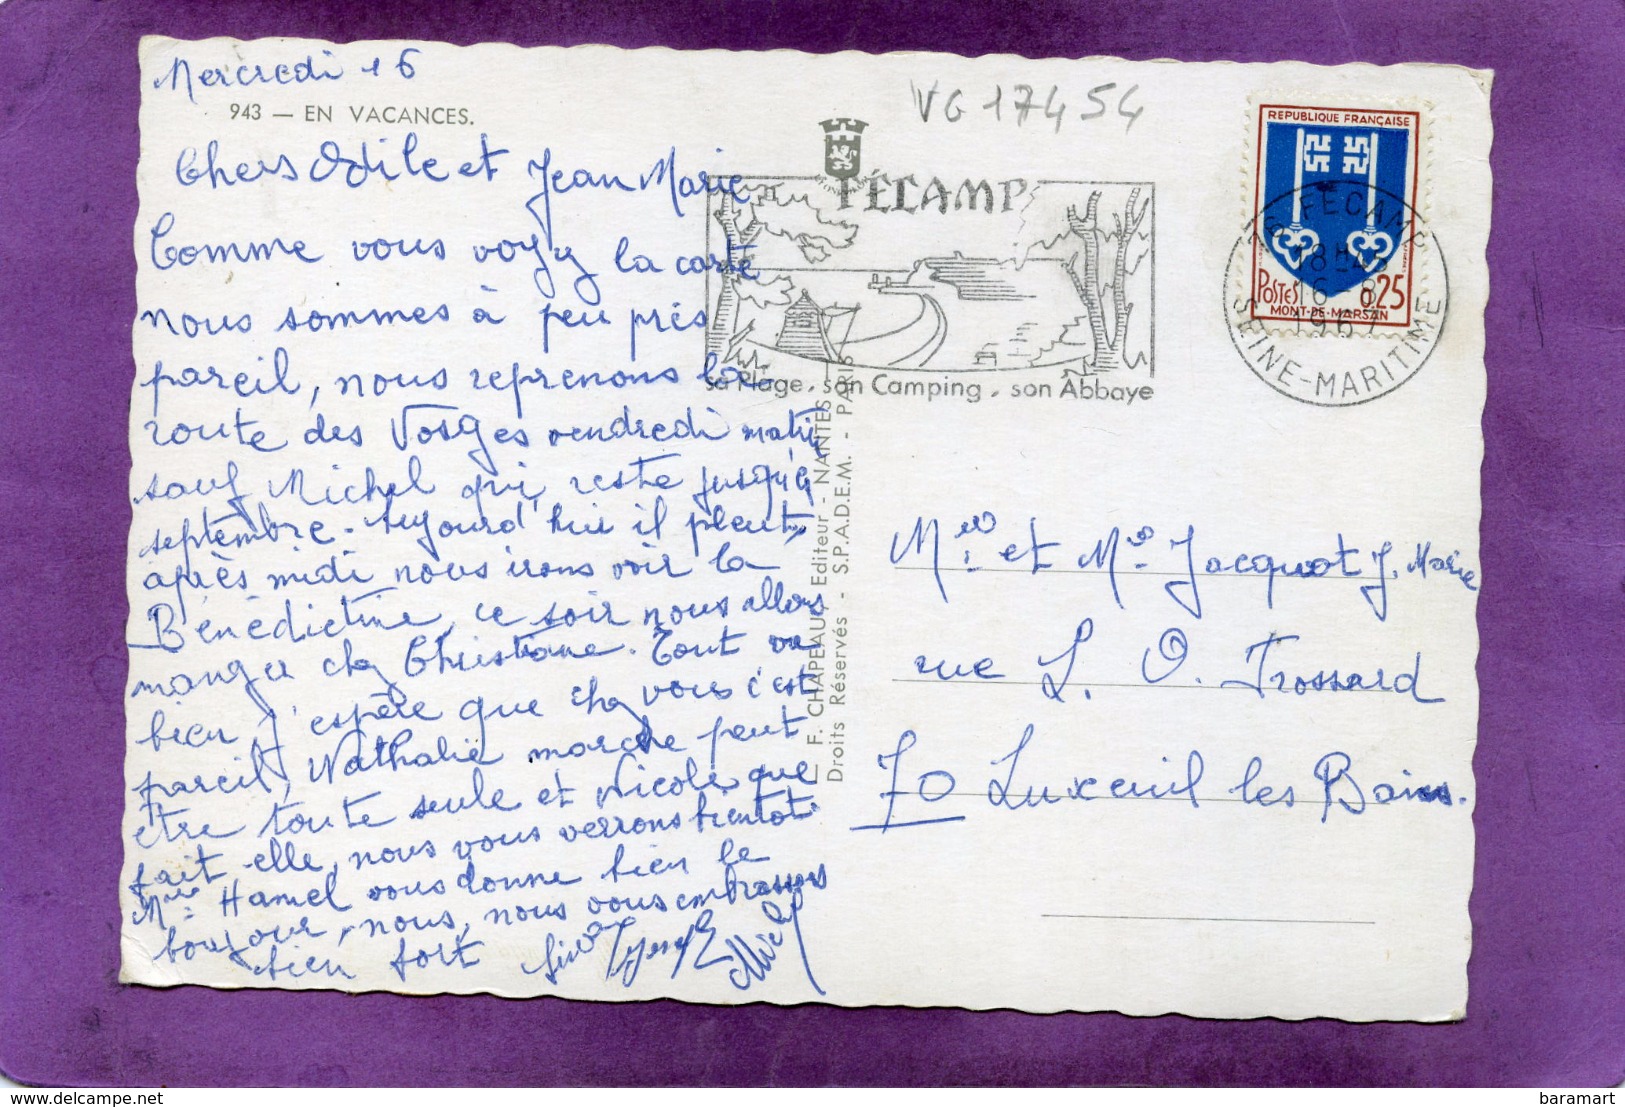 Mercredi 16
943 — EN VACANCES.
Chers Odile et Jean Marie
Comme vous voyez la carte
nous sommes à peu près
pareil, nous reprenons la
route des Vosges vendredi matin
sauf Michel qui reste jusqu'à
septembre. Aujourd'hui il pleut,
après midi nous irons voir la
Bénédictine, ce soir nous allons
manger chez Christiane. Tout va
bien, j'espère que chez vous c'est
pareil, Nathalie marche peut
être toute seule et Nicole que
fait-elle, nous vous verrons bientôt
Mme Hamel vous donne bien le
bonjour, nous, nous vous embrassons
bien fort
Joseph Michel
VG 17454
FÉCAMP
sa Plage, son Camping, son Abbaye
L. F. CHAPEAU, Editeur - NANTES
Droits Réservés - S.P.A.D.E.M. - PARIS
REPUBLIQUE FRANÇAISE
POSTES 0,25
MONT-DE-MARSAN
76 FECAMP
18H45
16 - 8
1967
SEINE-MARITIME
Mr et Me Jacquot J. Marie
rue L. O. Frossard
70 Luxeuil les Bains.
delcampe.net
baramart